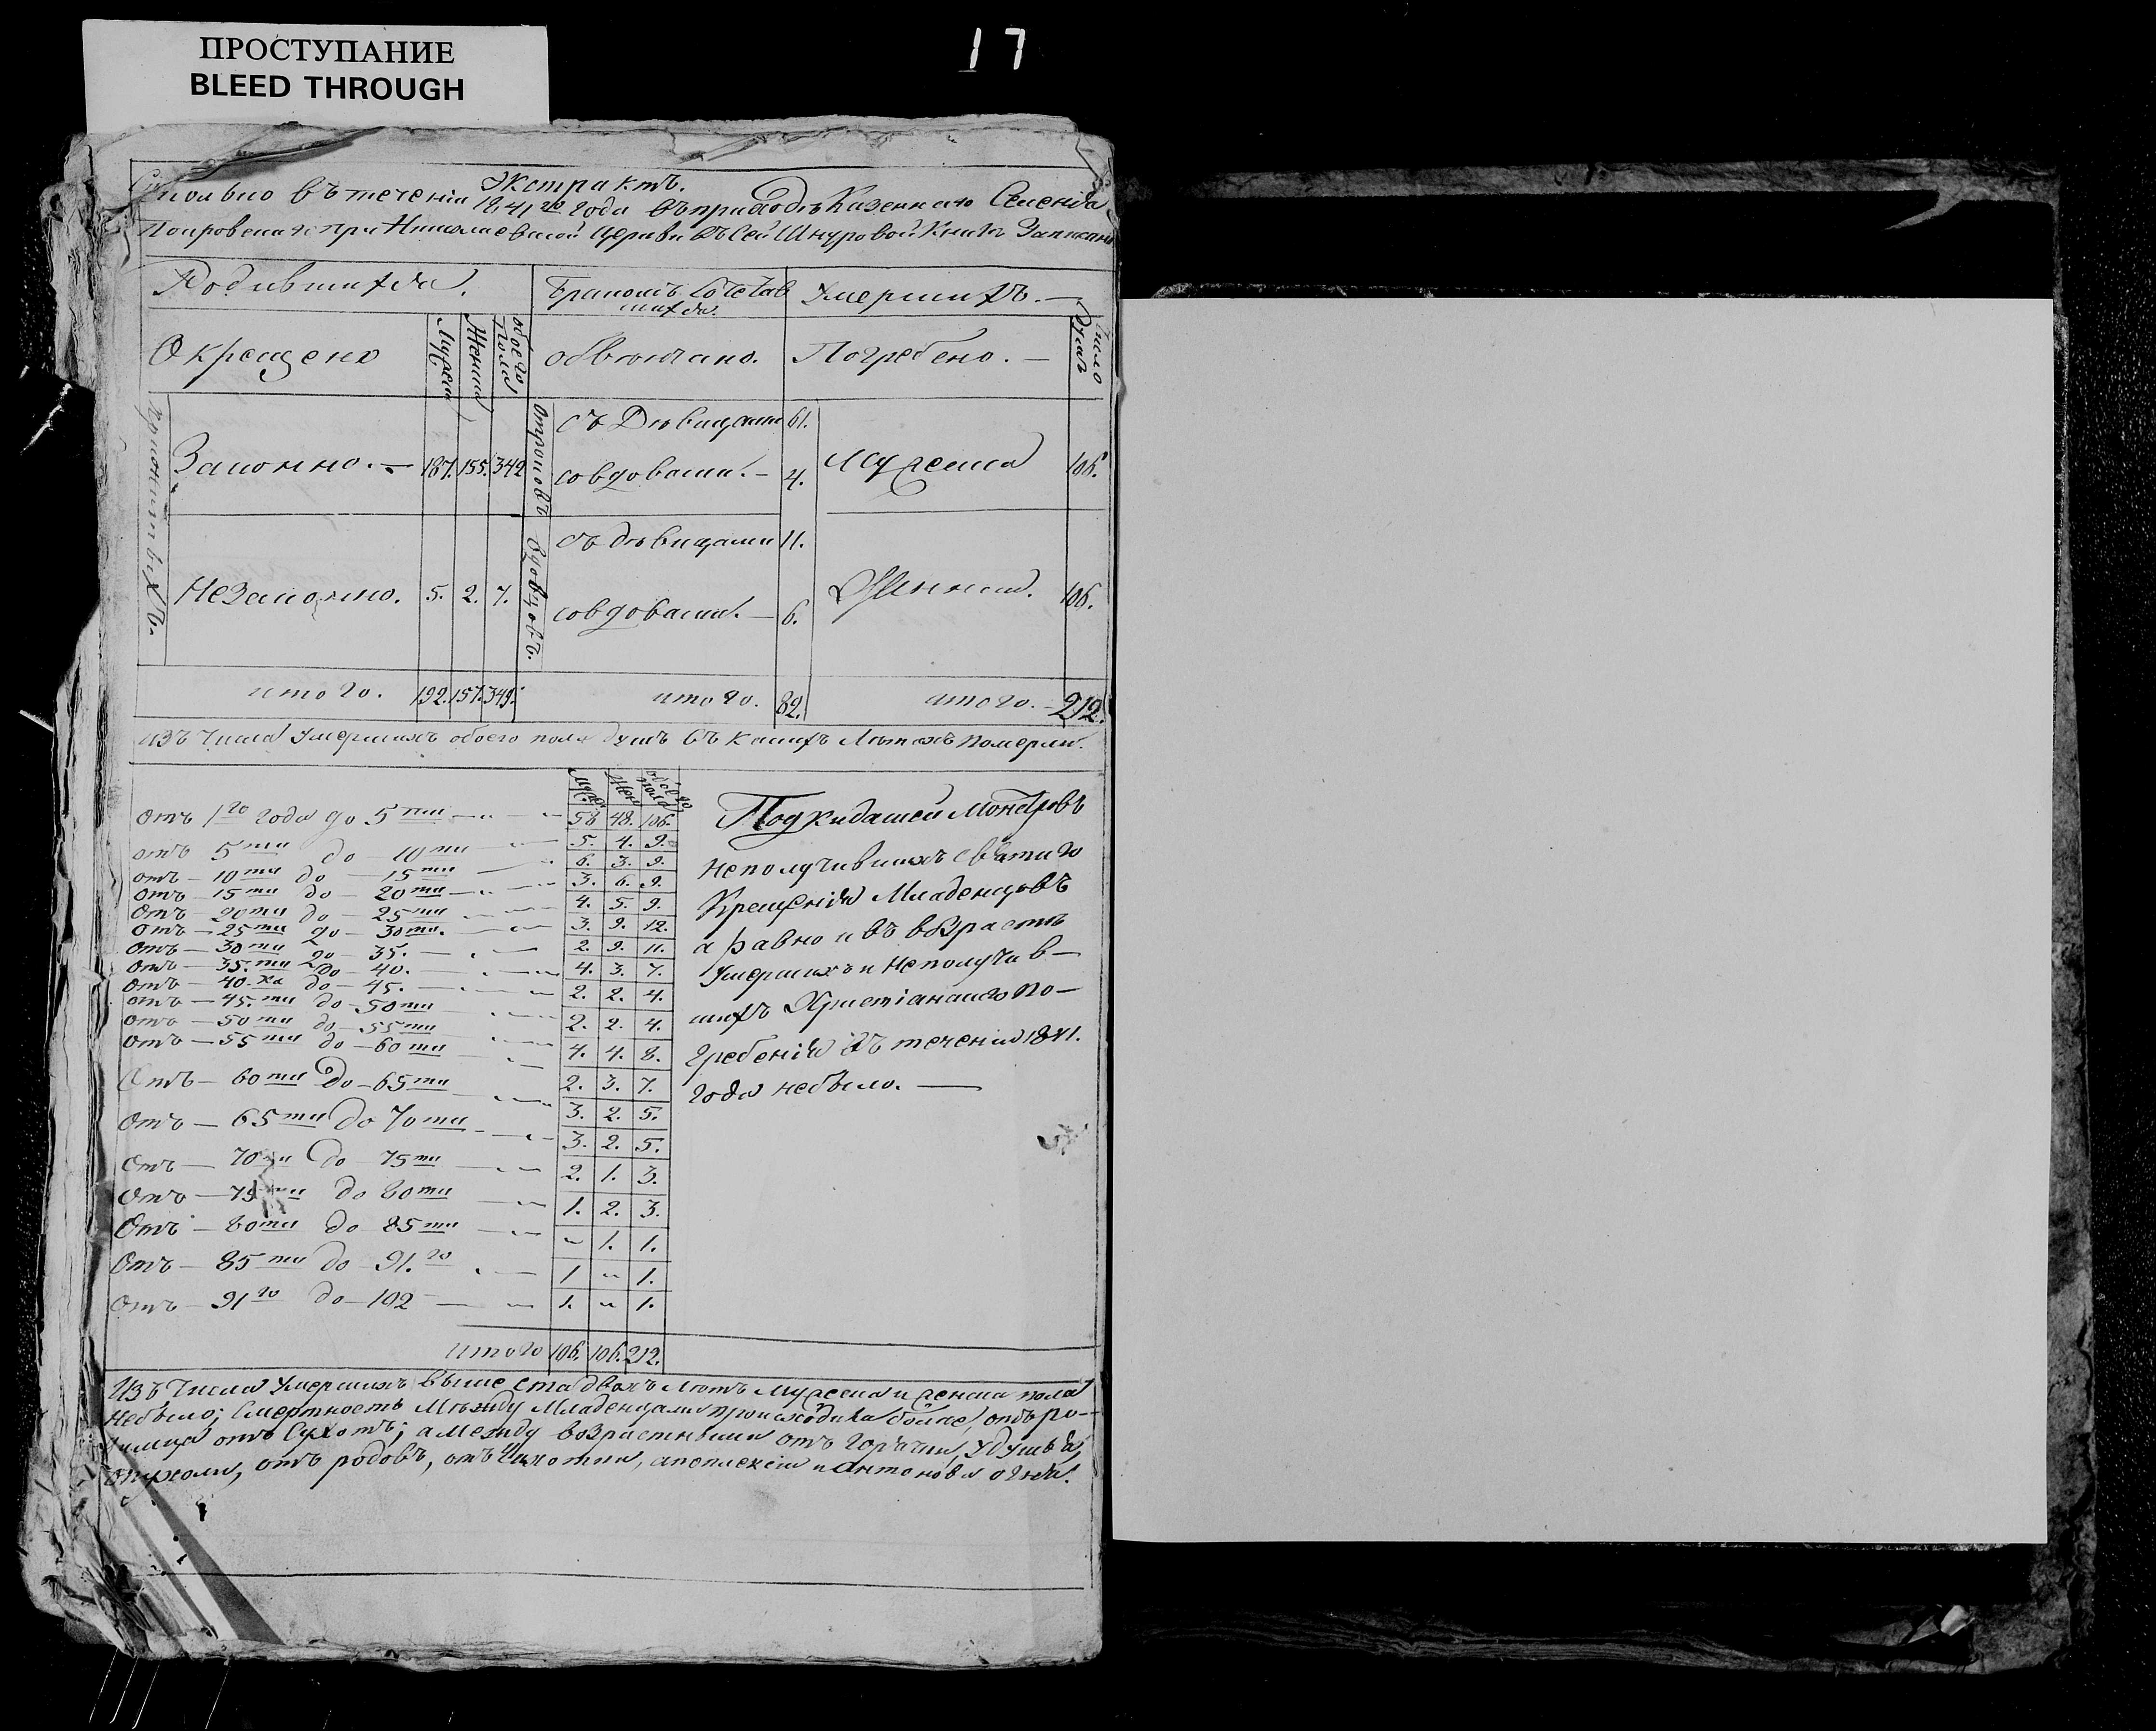 ПРОСТУПАНИЕ
BLEED THROUGH
17
Экстрактъ.
Сколько въ течении 1841го года въ приходѣ Казеннаго Селенія
Покровска при Николаевской Церкви въ сей Шнуровой Книгѣ Записано
Родившихся. Бракомъ Сочетав Умершихъ. —
шихся.
Окрещено Мужеск Женска обоего Пола обвѣнчано. Погребено. — Число душъ
Законно. — 187. 155. 342 Отроковъ съ Дѣвицами 61. Мужеска 106.
со вдовами. — 4.
Незаконно. 5. 2. 7. Вдовцовъ. съ дѣвицами 11. Женска. 106.
со вдовами. — 6.
итого. 192. 157. 349. итого. 82. итого. — 212.
Изъ Числа Умершихъ обоего пола душъ въ какихъ Лѣтахъ померли.
Муж. Жен. обоего пола
Отъ 1го года до 5ти 58 48. 106.
отъ 5ти до 10ти 5. 4. 9.
отъ — 10ти до — 15ти 6. 3. 9.
отъ — 15ти до — 20ти 3. 6. 9.
отъ — 20ти до — 25ти 4. 5. 9.
отъ — 25ти до — 30ти. 3. 9. 12.
отъ — 30ти до — 35. 2. 9. 11.
отъ — 35.ти до — 40. 4. 3. 7.
отъ — 40.ка до — 45. 2. 2. 4.
отъ — 45.ти до — 50ти 2. 2. 4.
отъ — 50ти до — 55ти 4. 4. 8.
отъ — 55ти до — 60ти 2. 3. 7.
Отъ — 60ти до — 65ти 3. 2. 5.
Отъ — 65ти до 70ти 3. 2. 5.
Отъ — 70ти до 75ти 2. 1. 3.
Отъ — 75ти до 80ти 1. 2. 3.
Отъ — 80ти до 85ти 〃 1. 1.
Отъ — 85ти до — 91.го 1 〃 1.
Отъ — 91го до — 102 1. 〃 1.
итого 106. 106. 212.
неполучившихъ святаго
Крещенія Младенцовъ
а равно и въ возрастѣ
Умершихъ и неполучив—
шихъ Христіанскаго по—
гребенія въ теченіи 1841.
года небыло. —
Изъ Числа Умершихъ выше ста двухъ лѣтъ мужеска и женска пола
небыло; Смертность между Младенцами происходила более, отъ ро—
димца отъ Сухотъ; а между возрастными отъ горячки, удушья,
опухоли, отъ родовъ, отъ Чахотки, апоплексіи и Антонова огня.